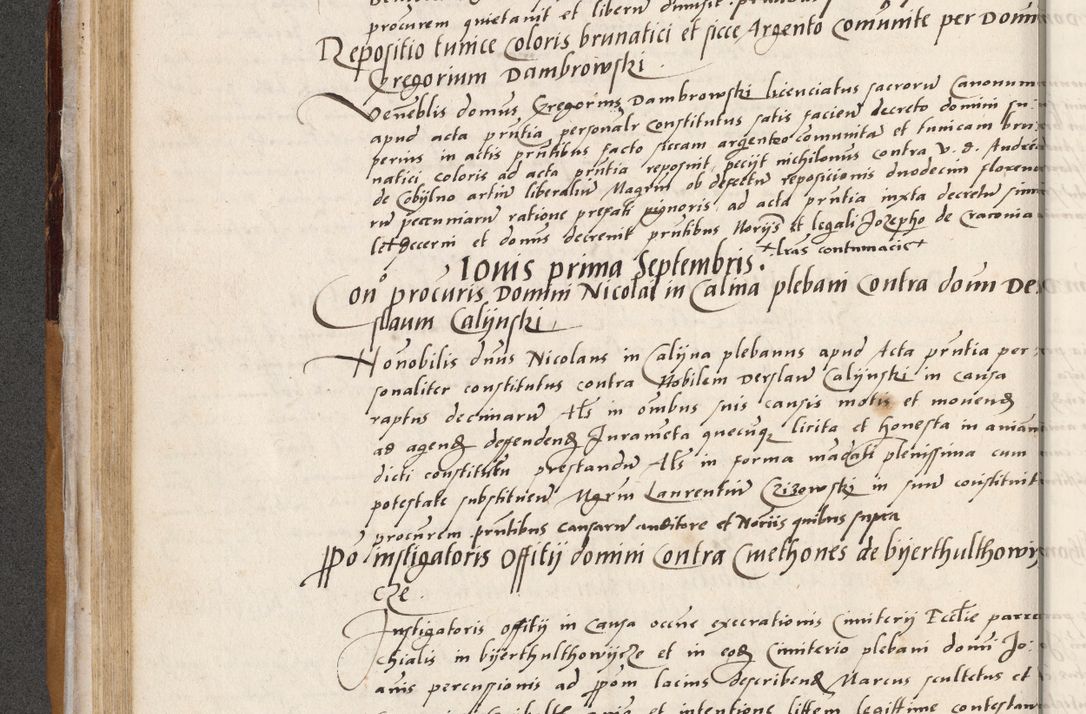 procurem quietavit et liberu dimisit
Repositio tunice coloris brunatici et sicce Argento comunite per Domin
Gregorium Dambrowski
Veneblis domus Gregorius Dambrowski licenciatus sacroru Canonum
apud acta pruntia personalr constitutus satis facien decreto domini su
perius in actis pruntibus facto siccam argenteo comunita et tunicam bru
natici coloris ad acta pruntia reposuit, pecijt nichilomus contra v. d. Andrea
de Cobylno artiu liberaliu Magrum ob defectu reposicionis duodecim floreno
ru pecunniaru ratione prefati pignoris ad acta pruntia iuxta decretu
decerni et domus decrevit pruntibus Norijs et legali Jozepho de Cracovia
+ lras contumacie +
Iovis prima Septembris.
Con procuris Domini Nicolai in Calina plebani contra domn Der
slaum Calijnski
Honobilis dnus Nicolaus in Calijna plebanus apud Acta pruntia per
sonaliter constitutus contra Nobilem Derslau Calijnski in causa
raptus decimaru Als in ombus suis causis motis et movend
ad agend deffendend Jurameta quecuq licita et honesta in aniam
dicti constitutu prestandu Als in forma madati plenissima cum
potestate substituen Mgrm Laurentiu Czizowski in suu constituit
procurem pruntibus causaru auditore et Noriis quibus supra
Ppo instigatoris Offitij domini contra Cmethones de bijerthulthowij
cze
Instigatoris offitij in causa occne execrationis Cimiterij Ecclie parro
chialis in bijerthulthowijcze et in eod Cimiterio plebani domi Jo
anis percussionis ad ppom lacius describend Marcus scultetus et
et intentione littem legittime contestan